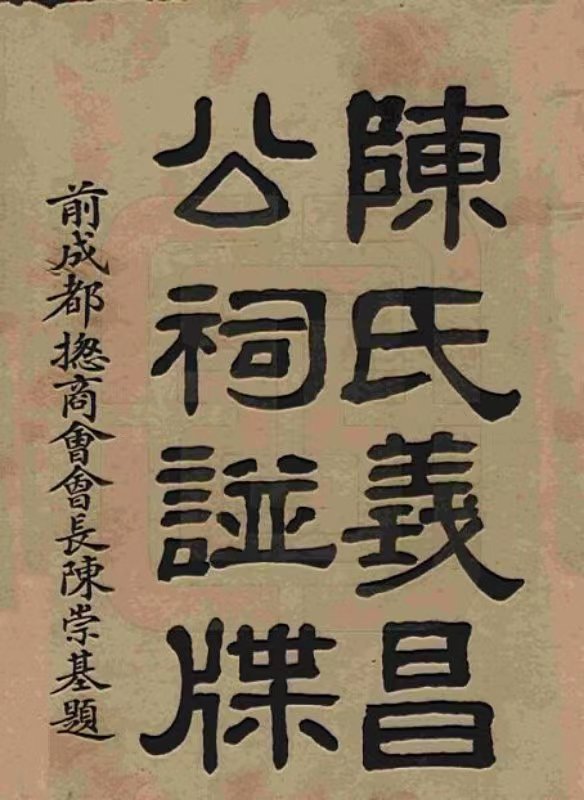 陳氏義昌
公祠諩牒
前成都揔商會會長陳崇基題